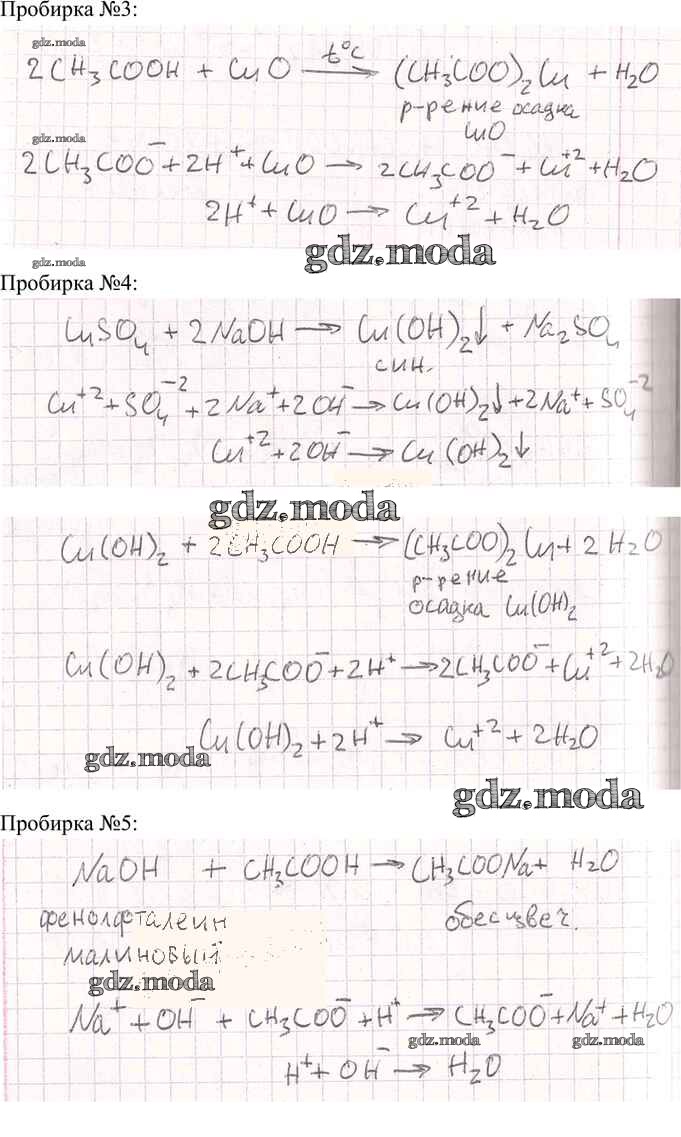 Пробирка №3:
gdz.moda
2CH₃COOH + CuO —t°C→ (CH₃COO)₂Cu + H₂O
р-рение осадка
CuO
gdz.moda
2CH₃COO⁻ + 2H⁺ + CuO → 2CH₃COO⁻ + Cu⁺² + H₂O
2H⁺ + CuO → Cu⁺² + H₂O
gdz.moda
gdz.moda
Пробирка №4:
CuSO₄ + 2NaOH → Cu(OH)₂↓ + Na₂SO₄
син.
Cu⁺² + SO₄⁻² + 2Na⁺ + 2OH⁻ → Cu(OH)₂↓ + 2Na⁺ + SO₄⁻²
Cu⁺² + 2OH⁻ → Cu(OH)₂↓
gdz.moda
Cu(OH)₂ + 2CH₃COOH → (CH₃COO)₂Cu + 2H₂O
р-рение
осадка Cu(OH)₂
Cu(OH)₂ + 2CH₃COO⁻ + 2H⁺ → 2CH₃COO⁻ + Cu⁺² + 2H₂O
Cu(OH)₂ + 2H⁺ → Cu⁺² + 2H₂O
gdz.moda
gdz.moda
Пробирка №5:
NaOH + CH₃COOH → CH₃COONa + H₂O
фенолфталеин обесцвеч.
малиновый
gdz.moda
Na⁺ + OH⁻ + CH₃COO⁻ + H⁺ → CH₃COO⁻ + Na⁺ + H₂O
gdz.moda gdz.moda
H⁺ + OH⁻ → H₂O